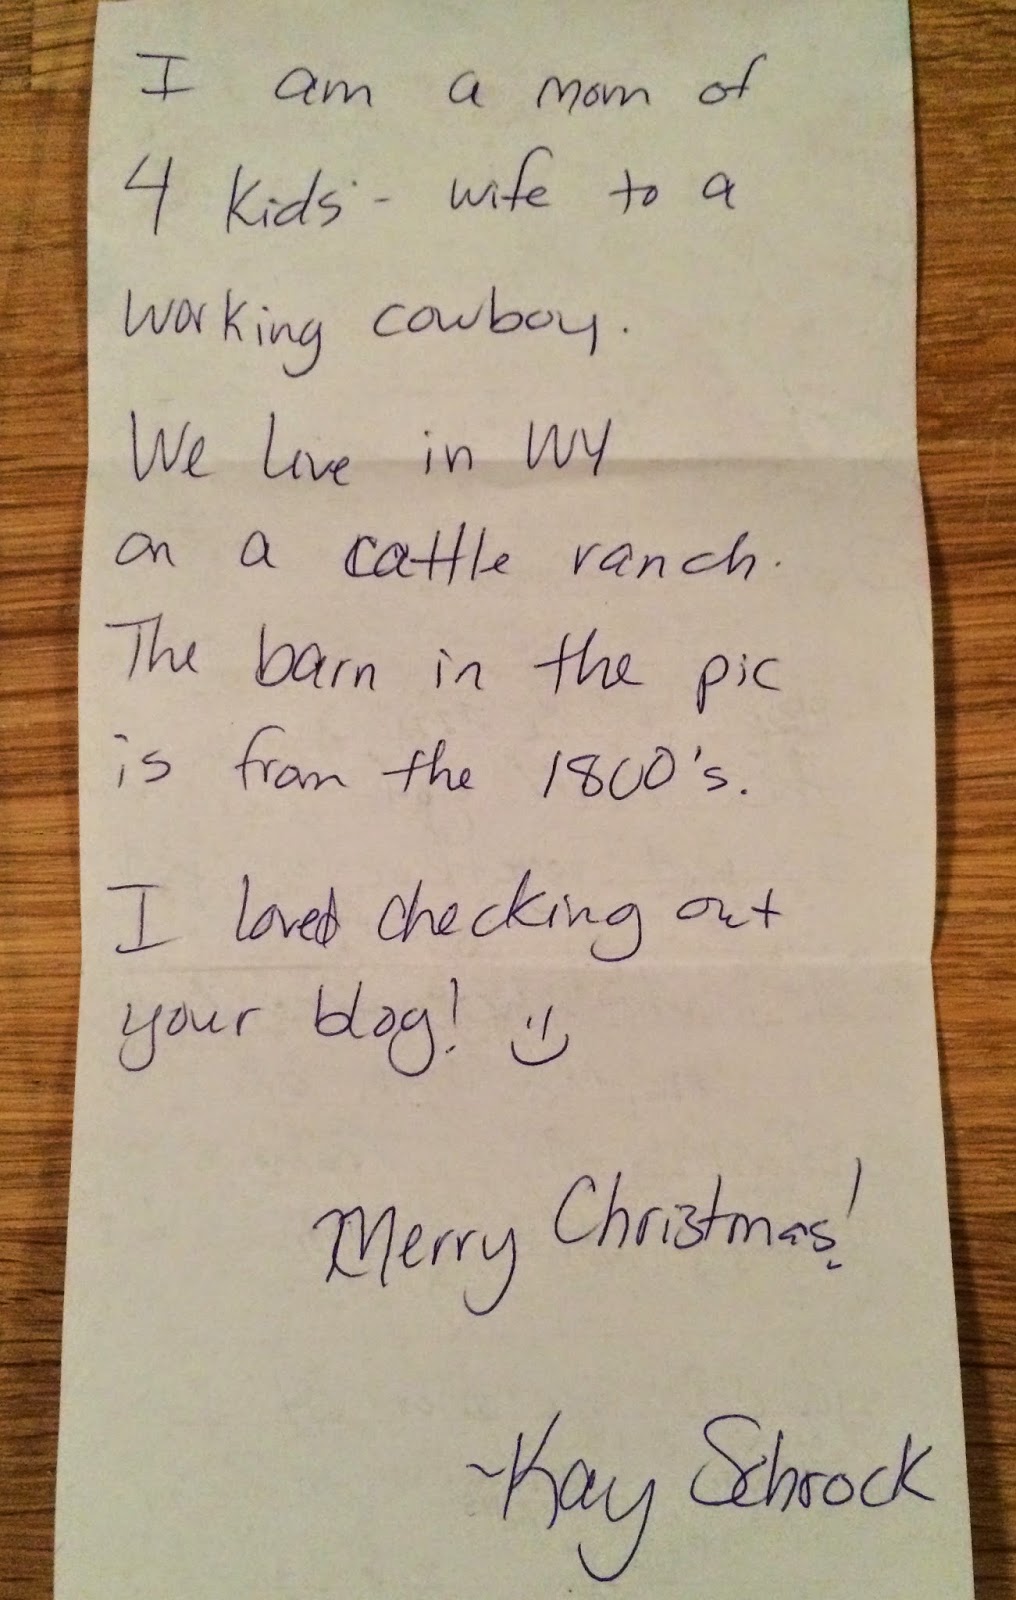 I am a mom of
4 kids - wife to a
working cowboy.
We live in WY
on a cattle ranch.
The barn in the pic
is from the 1800's.
I loved checking out
your blog! :)
Merry Christmas!
~Kay Schrock